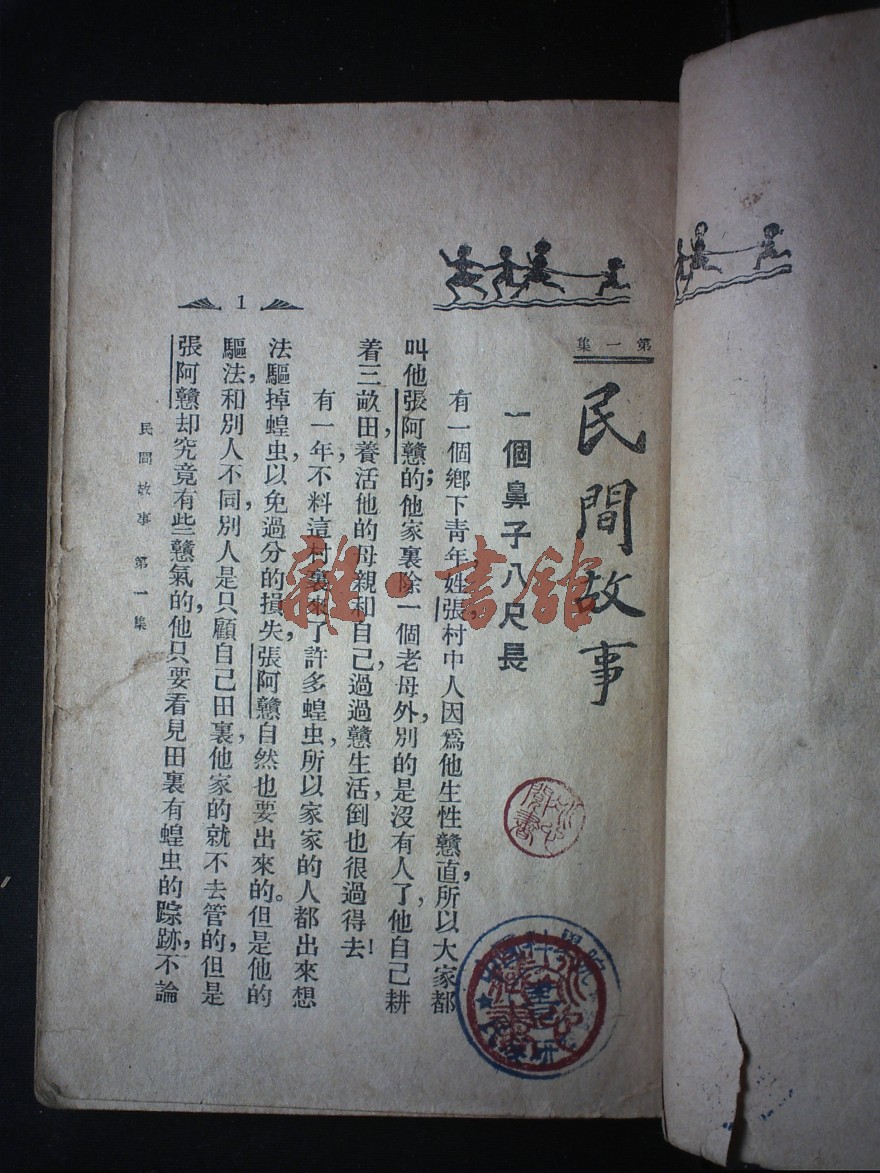 第一集
民間故事
一個鼻子八尺長
有一個鄉下青年姓張，村中人因爲他生性戇直，所以大家都
叫他張阿戇的；他家裏除一個老母外，別的是沒有人了，他自己耕
着三畝田，養活他的母親和自己，過過戇生活，倒也很過得去！
有一年，不料這村裏來了許多蝗虫，所以家家的人都出來想
法驅掉蝗虫，以免過分的損失，張阿戇自然也要出來的。但是他的
驅法，和別人不同，別人是只顧自己田裏，他家的就不去管的，但是
張阿戇却究竟有些戇氣的，他只要看見田裏有蝗虫的踪跡，不論
民間故事 第一集
1
雜·書館